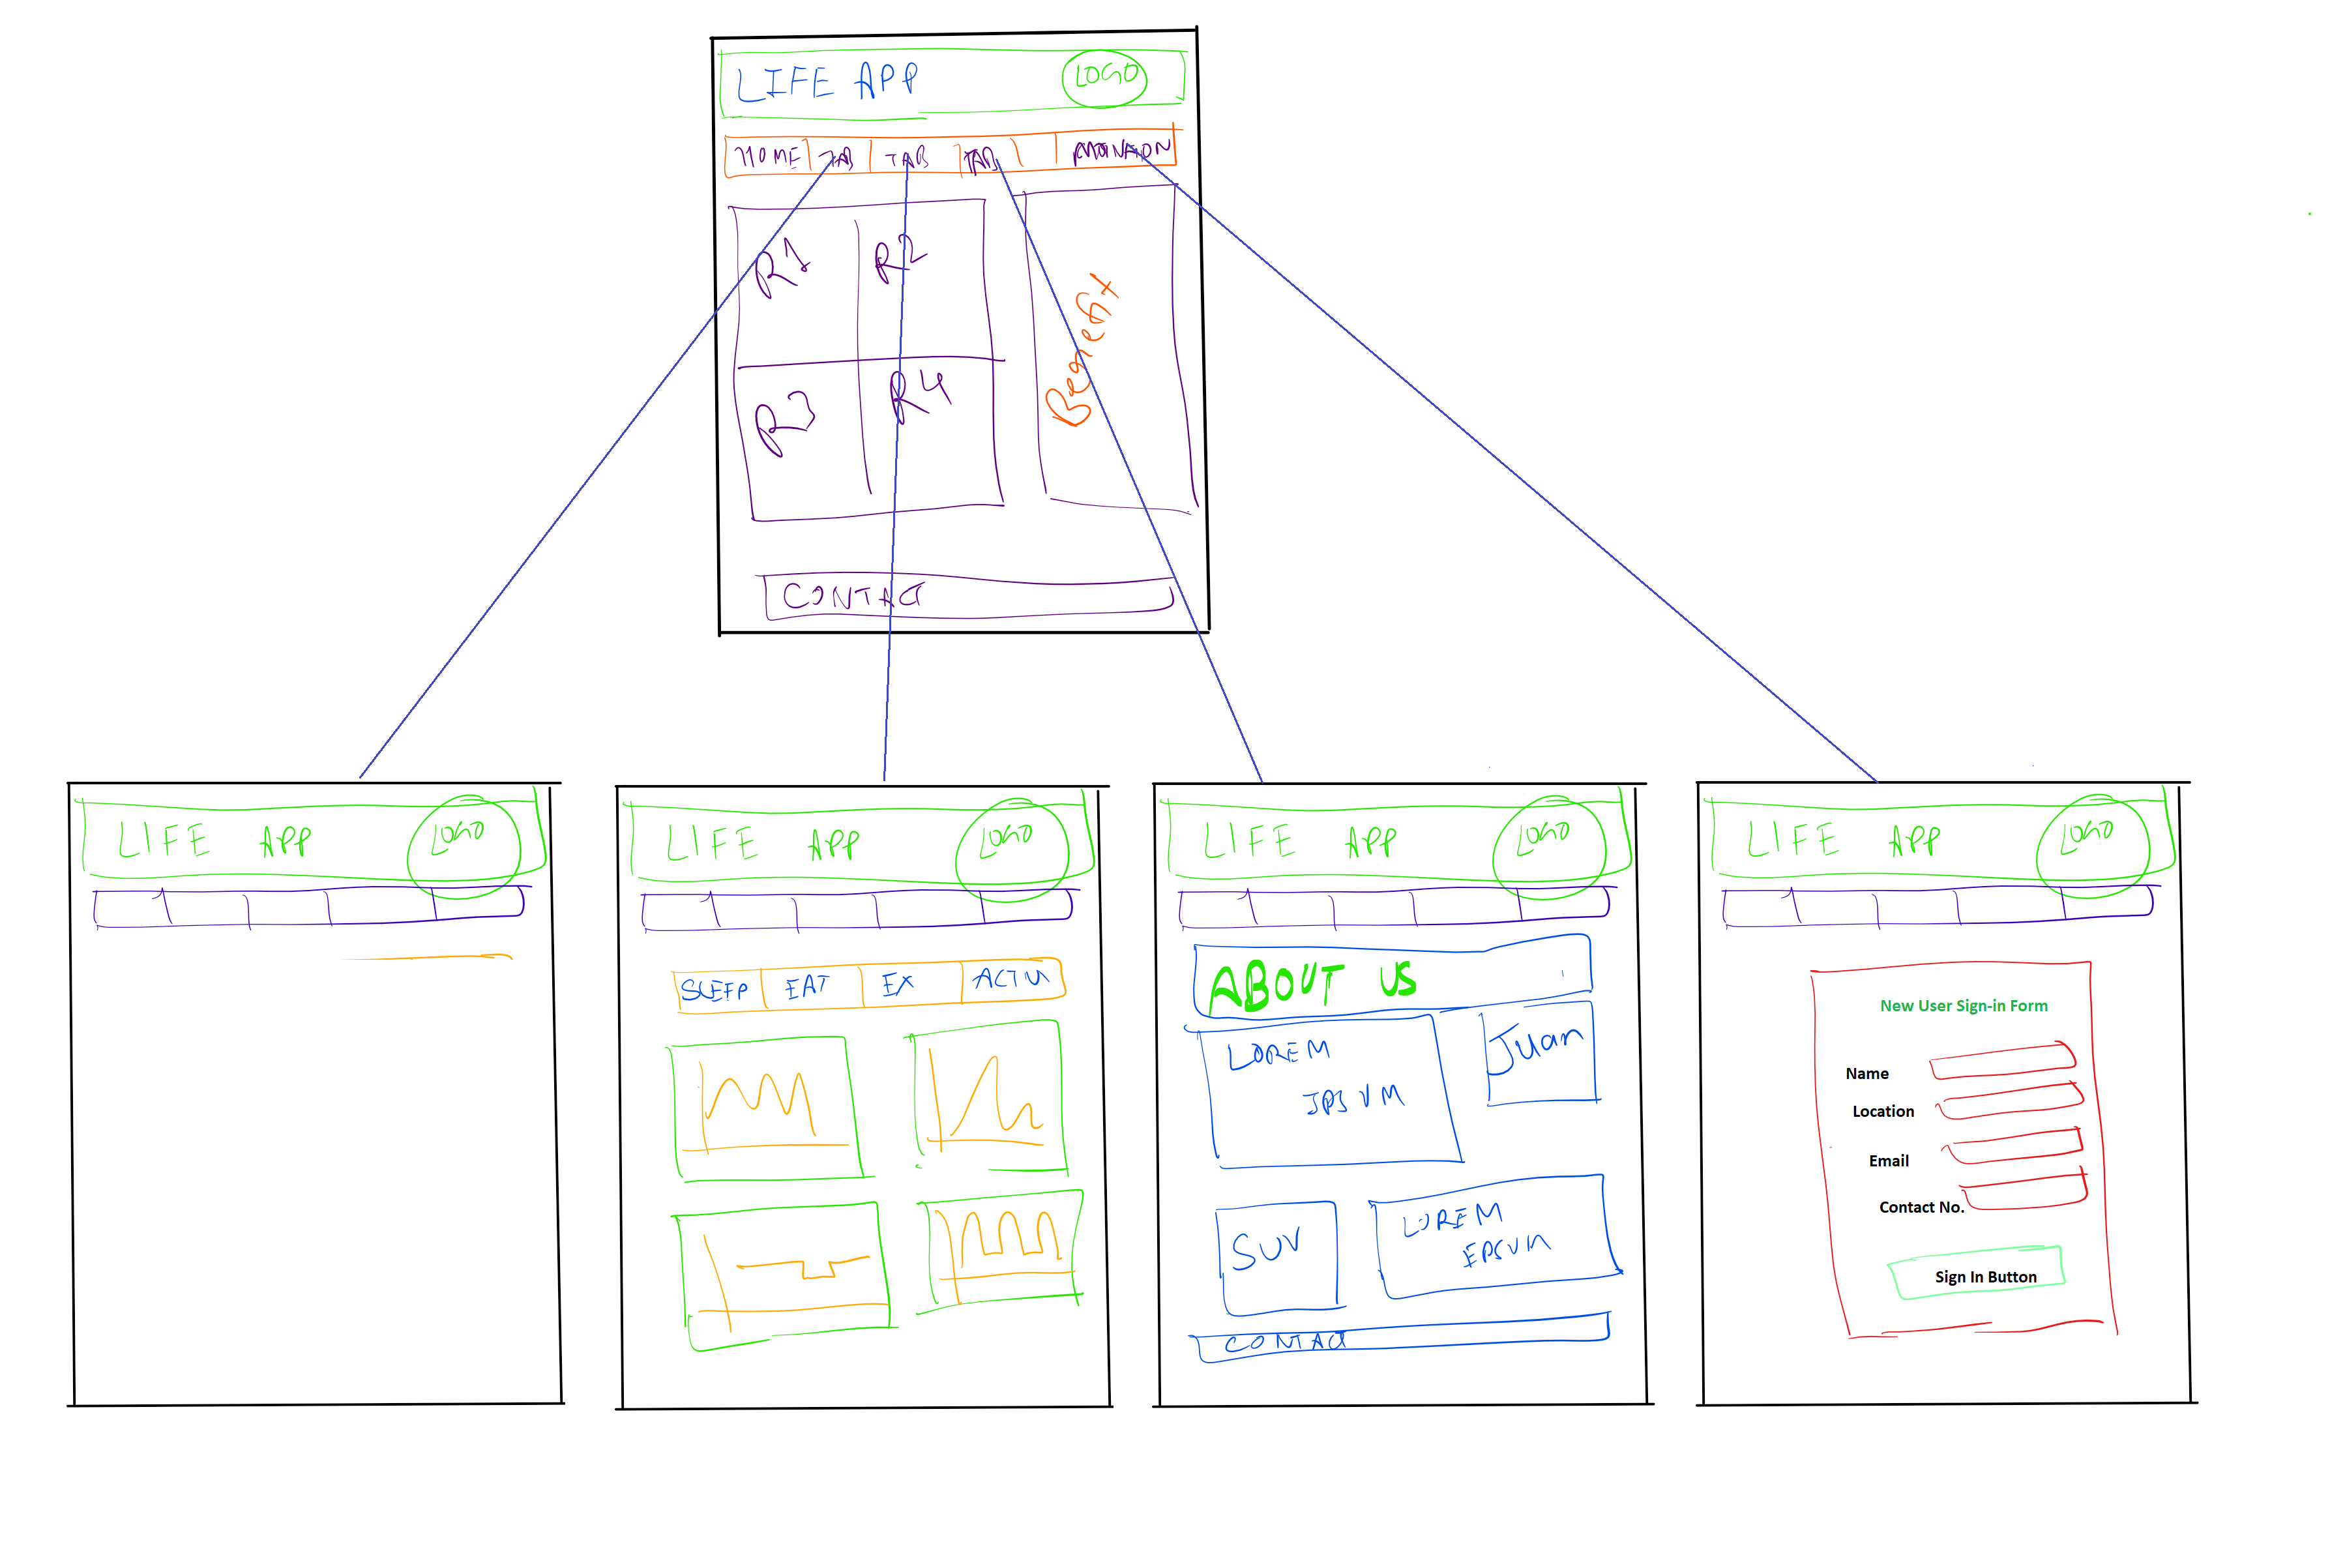 LIFE APP LOGO
HOME TAB TAB TAB
R1 R2
Benefit
R3 R4
CONTACT
LIFE APP LOGO
LIFE APP LOGO
SLEEP EAT EX ACTIV
LIFE APP LOGO
ABOUT US
LOREM
IPSUM
Juan
SUV
LOREM
EPSUM
CONTACT
LIFE APP LOGO
New User Sign-in Form
Name
Location
Email
Contact No.
Sign In Button